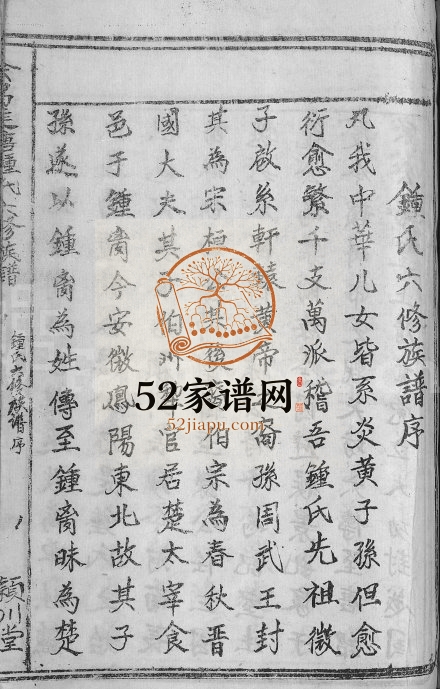 鍾氏六修族譜序
凡我中華儿女皆系炎黄子孫但愈
衍愈繁千支萬派稽吾鍾氏先祖微
子啟系軒轅黄帝裔孫周武王封
其為宋桓其後伯宗為春秋晋
國大夫其子伯州官居楚太宰食
邑于鍾离今安徽鳳陽東北故其子
孫遂以鍾离為姓傳至鍾离昧為楚
鍾氏六修族譜序
潁川堂
52家谱网
52jiapu.com